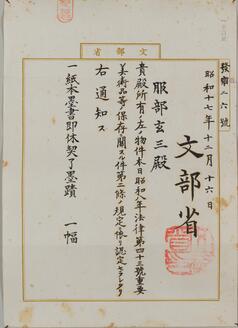 文部省
發宗二六號
昭和十七年十二月十六日
文部省
服部玄三殿
貴殿所有ノ左ノ物件本日昭和八年法律第四十三號重要
美術品等ノ保存ニ関スル件第二條ノ規定ニ依リ認定セラレタリ
右通知ス
一紙本墨書即休契了墨蹟 一幅